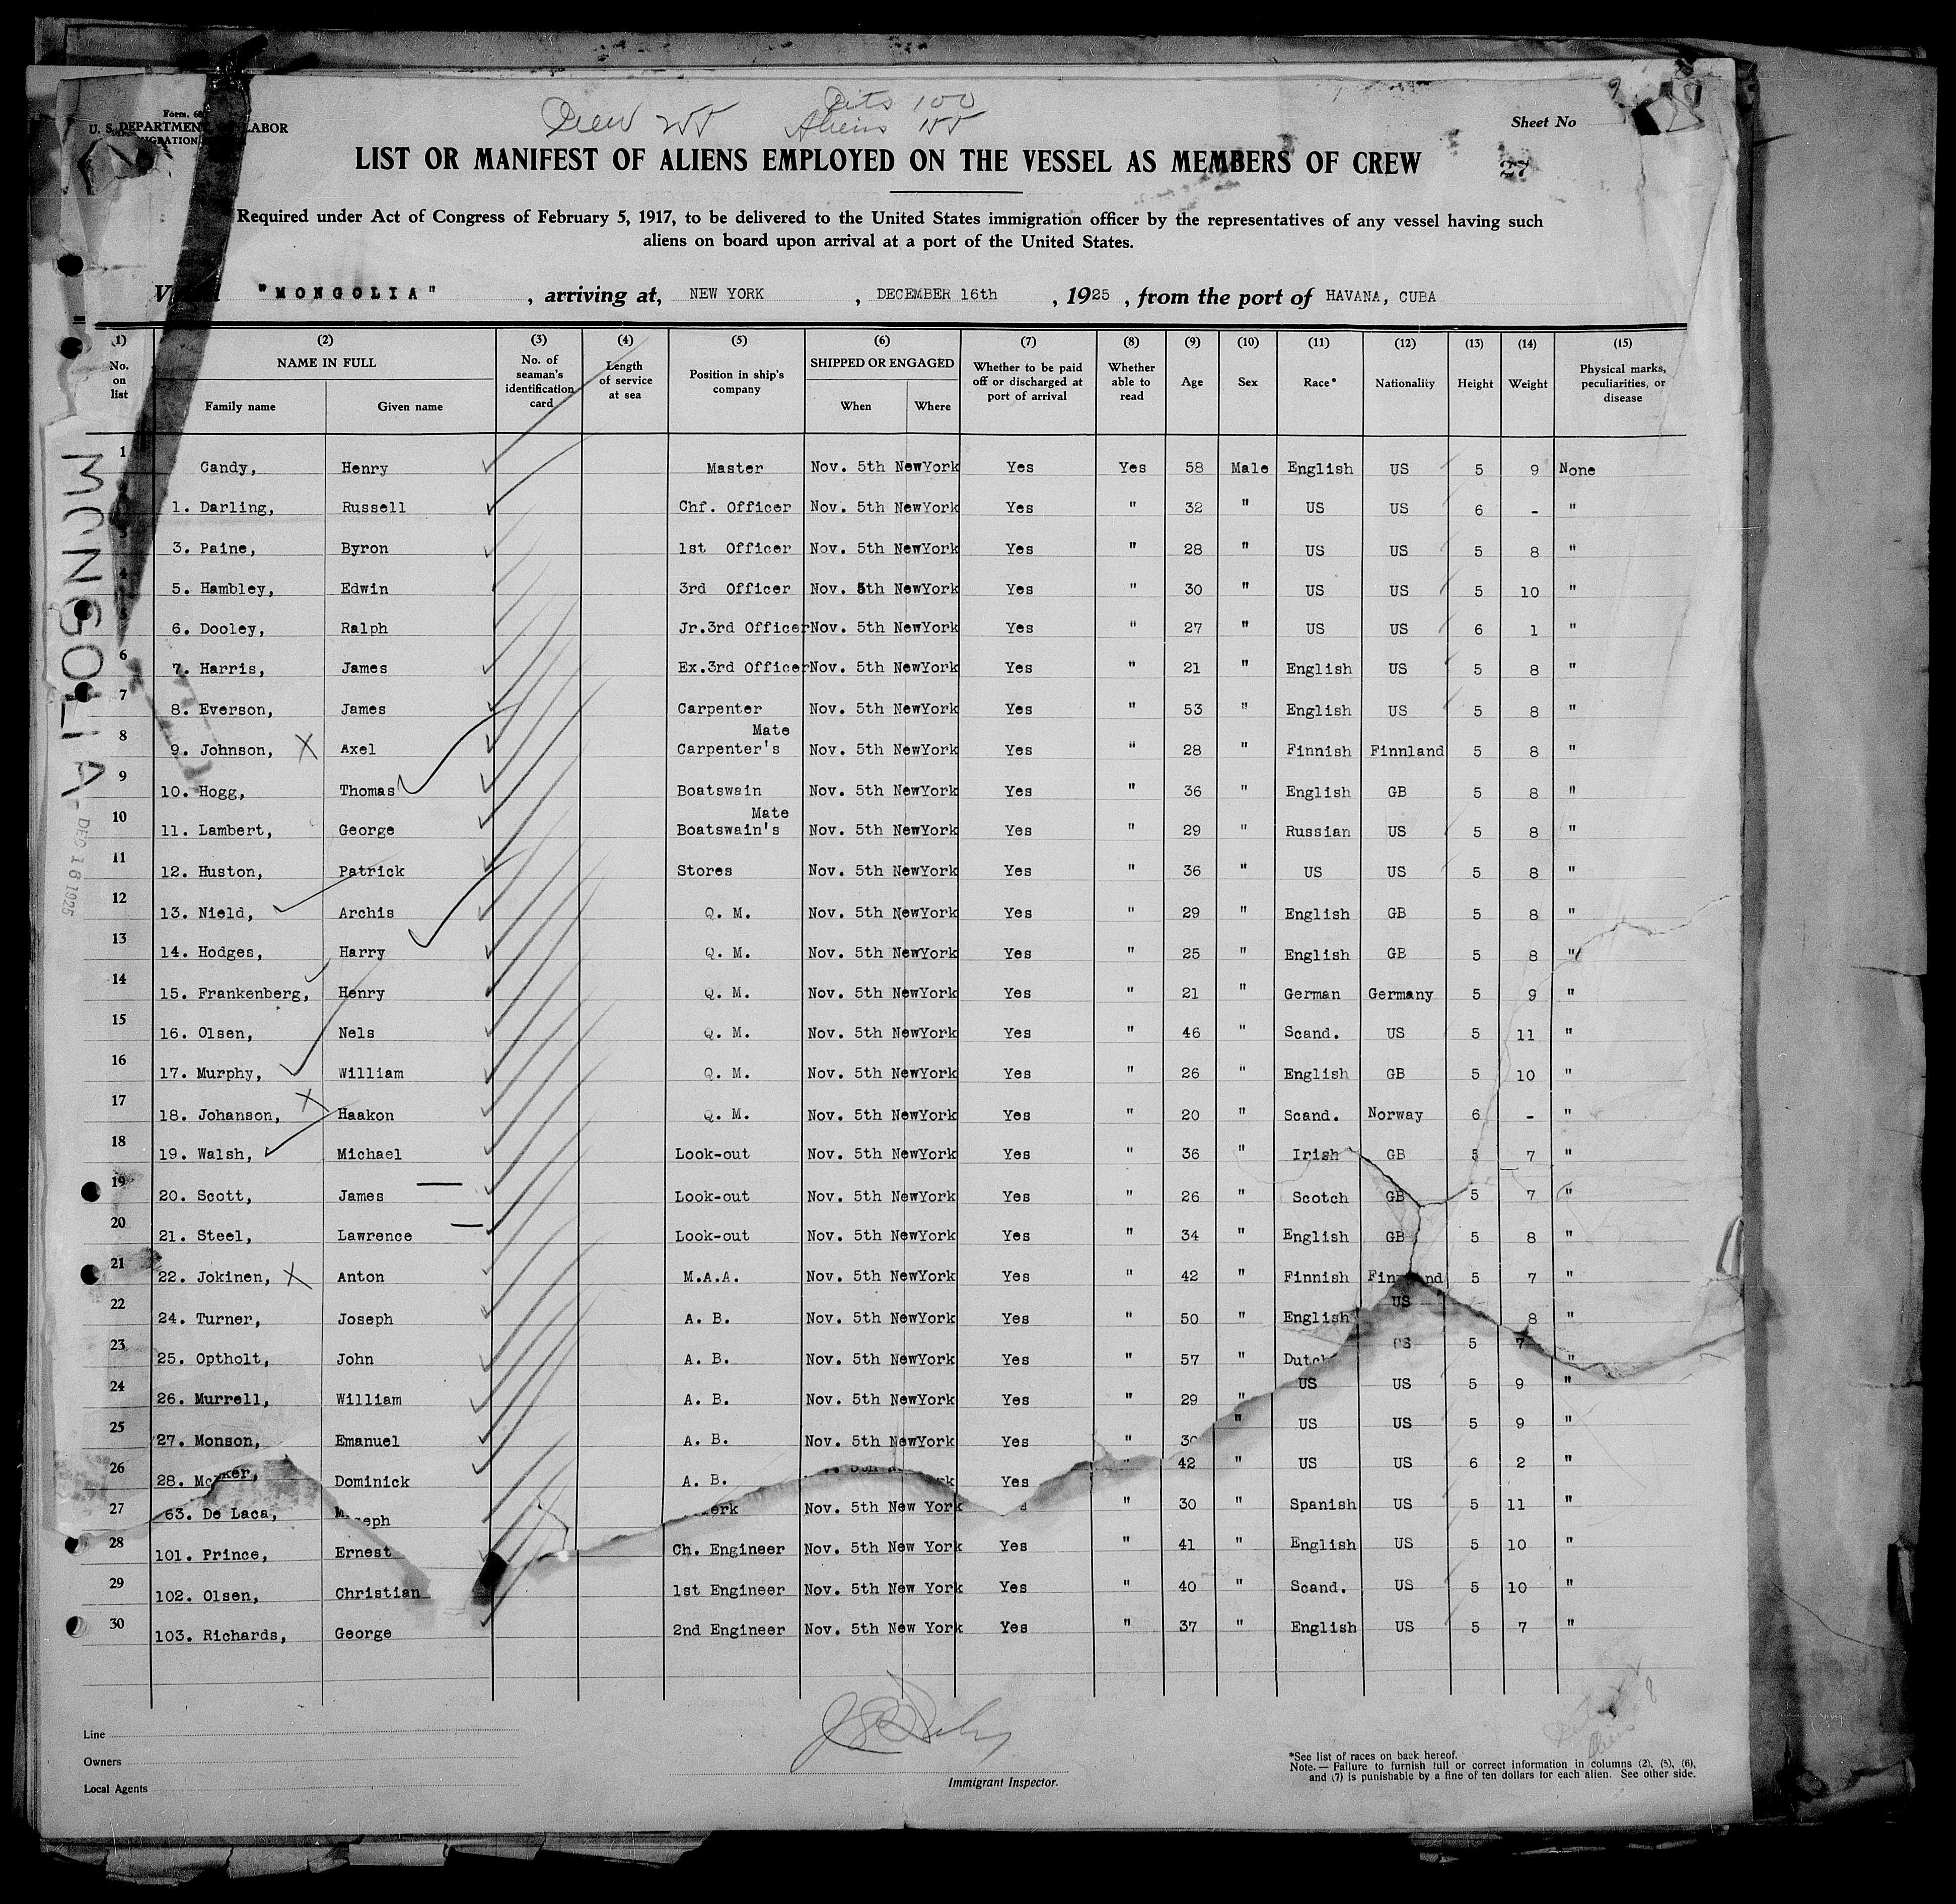 Crew 255 Cits 100
Aliens 155
Form. 68
U. S. DEPARTMENT OF LABOR
Sheet No
LIST OR MANIFEST OF ALIENS EMPLOYED ON THE VESSEL AS MEMBERS OF CREW
27
Required under Act of Congress of February 5, 1917, to be delivered to the United States immigration officer by the representatives of any vessel having such
aliens on board upon arrival at a port of the United States.
"MONGOLIA" , arriving at, NEW YORK , DECEMBER 16th , 1925 , from the port of HAVANA, CUBA
(1) (2) (3) (4) (5) (6) (7) (8) (9) (10) (11) (12) (13) (14) (15)
No. on list NAME IN FULL Family name Given name No. of seaman's identification card Length of service at sea Position in ship's company SHIPPED OR ENGAGED When Where Whether to be paid off or discharged at port of arrival Whether able to read Age Sex Race* Nationality Height Weight Physical marks, peculiarities, or disease
1 Candy, Henry Master Nov. 5th NewYork Yes Yes 58 Male English US 5 9 None
1. Darling, Russell Chf. Officer Nov. 5th NewYork Yes " 32 " US US 6 - "
3. Paine, Byron 1st Officer Nov. 5th NewYork Yes " 28 " US US 5 8 "
5. Hambley, Edwin 3rd Officer Nov. 5th NewYork Yes " 30 " US US 5 10 "
6. Dooley, Ralph Jr.3rd Officer Nov. 5th NewYork Yes " 27 " US US 6 1 "
6 7. Harris, James Ex.3rd Officer Nov. 5th NewYork Yes " 21 " English US 5 8 "
7 8. Everson, James Carpenter Nov. 5th NewYork Yes " 53 " English US 5 8 "
8 9. Johnson, X Axel Carpenter's Mate Nov. 5th NewYork Yes " 28 " Finnish Finnland 5 8 "
9 10. Hogg, Thomas Boatswain Nov. 5th NewYork Yes " 36 " English GB 5 8 "
10 11. Lambert, George Boatswain's Mate Nov. 5th NewYork Yes " 29 " Russian US 5 8 "
11 12. Huston, Patrick Stores Nov. 5th NewYork Yes " 36 " US US 5 8 "
12 13. Nield, Archis Q. M. Nov. 5th NewYork Yes " 29 " English GB 5 8 "
13 14. Hodges, Harry Q. M. Nov. 5th NewYork Yes " 25 " English GB 5 8 "
14 15. Frankenberg, Henry Q. M. Nov. 5th NewYork Yes " 21 " German Germany 5 9 "
15 16. Olsen, Nels Q. M. Nov. 5th NewYork Yes " 46 " Scand. US 5 11 "
16 17. Murphy, William Q. M. Nov. 5th NewYork Yes " 26 " English GB 5 10 "
17 18. Johanson, X Haakon Q. M. Nov. 5th NewYork Yes " 20 " Scand. Norway 6 - "
18 19. Walsh, Michael Look-out Nov. 5th NewYork Yes " 36 " Irish GB 5 7 "
19 20. Scott, James Look-out Nov. 5th NewYork Yes " 26 " Scotch GB 5 7 "
20 21. Steel, Lawrence Look-out Nov. 5th NewYork Yes " 34 " English GB 5 8 "
21 22. Jokinen, X Anton M.A.A. Nov. 5th NewYork Yes " 42 " Finnish Finnland 5 7 "
22 24. Turner, Joseph A. B. Nov. 5th NewYork Yes " 50 " English US 8 "
23 25. Optholt, John A. B. Nov. 5th NewYork Yes " 57 " Dutch US 5 7 "
24 26. Murrell, William A. B. Nov. 5th NewYork Yes " 29 " US US 5 9 "
25 27. Monson, Emanuel A. B. Nov. 5th NewYork Yes " 30 " US US 5 9 "
26 28. Dominick A. B. Yes " 42 " US US 6 2 "
27 63. De Laca, Nov. 5th New York " 30 " Spanish US 5 11 "
28 101. Prince, Ernest Ch. Engineer Nov. 5th New York Yes " 41 " English US 5 10 "
29 102. Olsen, Christian 1st Engineer Nov. 5th New York Yes " 40 " Scand. US 5 10 "
30 103. Richards, George 2nd Engineer Nov. 5th New York Yes " 37 " English US 5 7 "
MONGOLIA
DEC 16 1925
Line
Owners
Local Agents
Immigrant Inspector.
*See list of races on back hereof.
Note.— Failure to furnish full or correct information in columns (2), (5), (6),
and (7) is punishable by a fine of ten dollars for each alien. See other side.